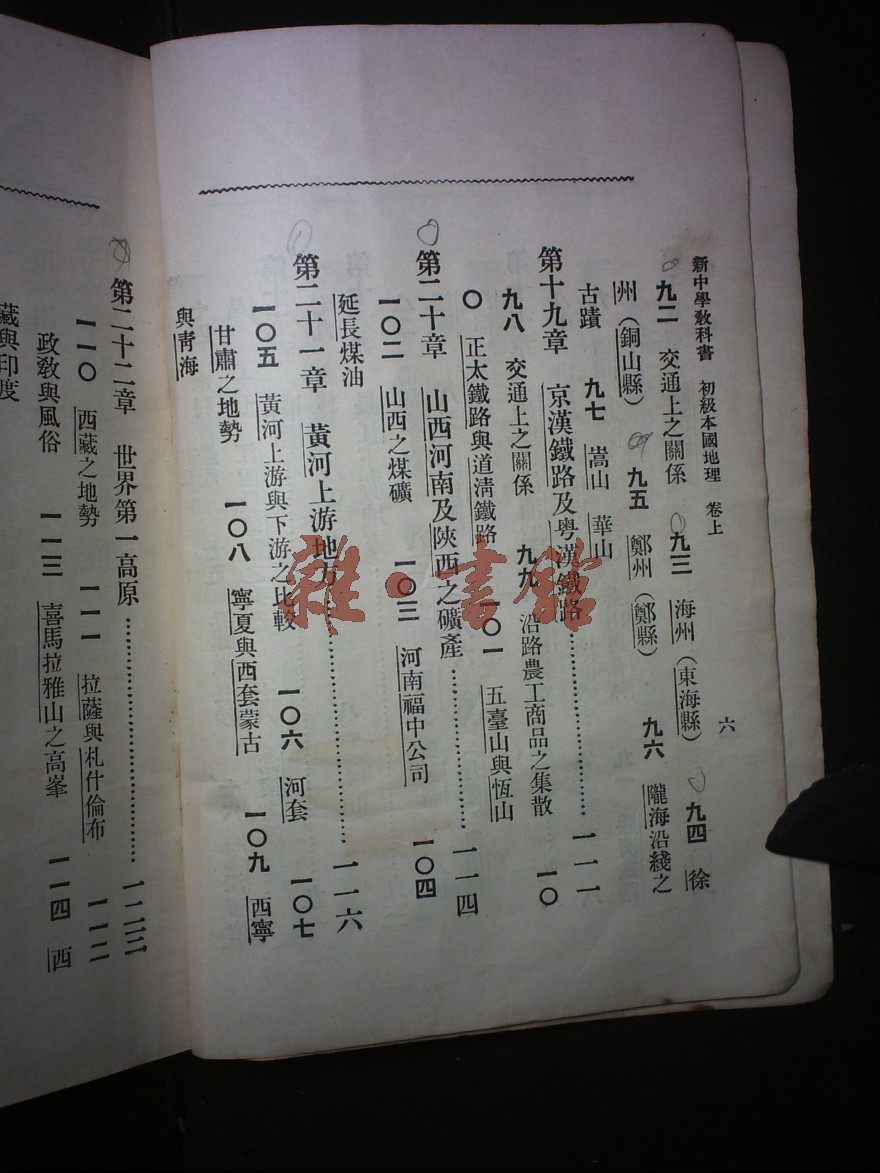 新中學教科書 初級本國地理 卷上 六
九二 交通上之關係 九三 海州(東海縣) 九四 徐
州(銅山縣) 九五 鄭州(鄭縣) 九六 隴海沿綫之
古蹟 九七 嵩山 華山
第十九章 京漢鐵路及粵漢鐵路…………一一一
九八 交通上之關係 九九 沿路農工商品之集散 一〇
〇 正太鐵路與道淸鐵路 一〇一 五臺山與恆山
第二十章 山西河南及陝西之礦產…………一一四
一〇二 山西之煤礦 一〇三 河南福中公司 一〇四
延長煤油
第二十一章 黃河上游地方…………一一六
一〇五 黃河上游與下游之比較 一〇六 河套 一〇七
甘肅之地勢 一〇八 寧夏與西套蒙古 一〇九 西寧
與青海
第二十二章 世界第一高原…………一二三
一一〇 西藏之地勢 一一一 拉薩與札什倫布 一一二
政敎與風俗 一一三 喜馬拉雅山之高峯 一一四 西
藏與印度
雜·書館